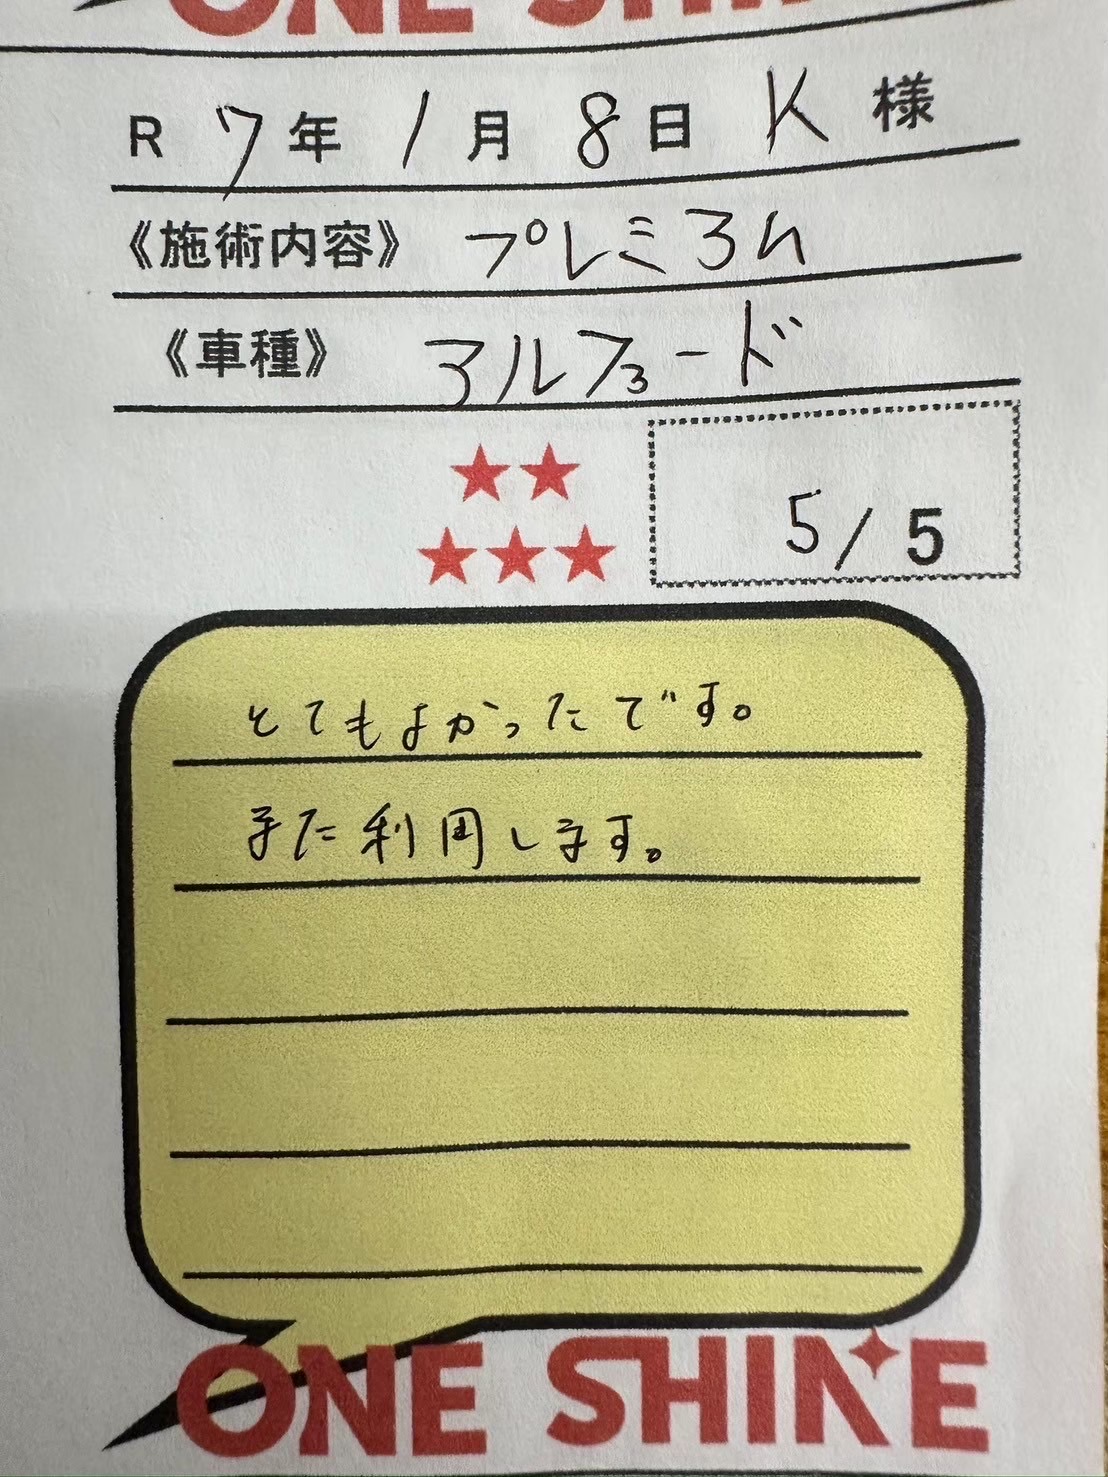 ONE SHINE
R 7年 1月 8日 K 様
《施術内容》 プレミヨム
《車種》 アルファード
★★
★★★
5/5
とてもよかったです。
また利用します。
ONE SHINE